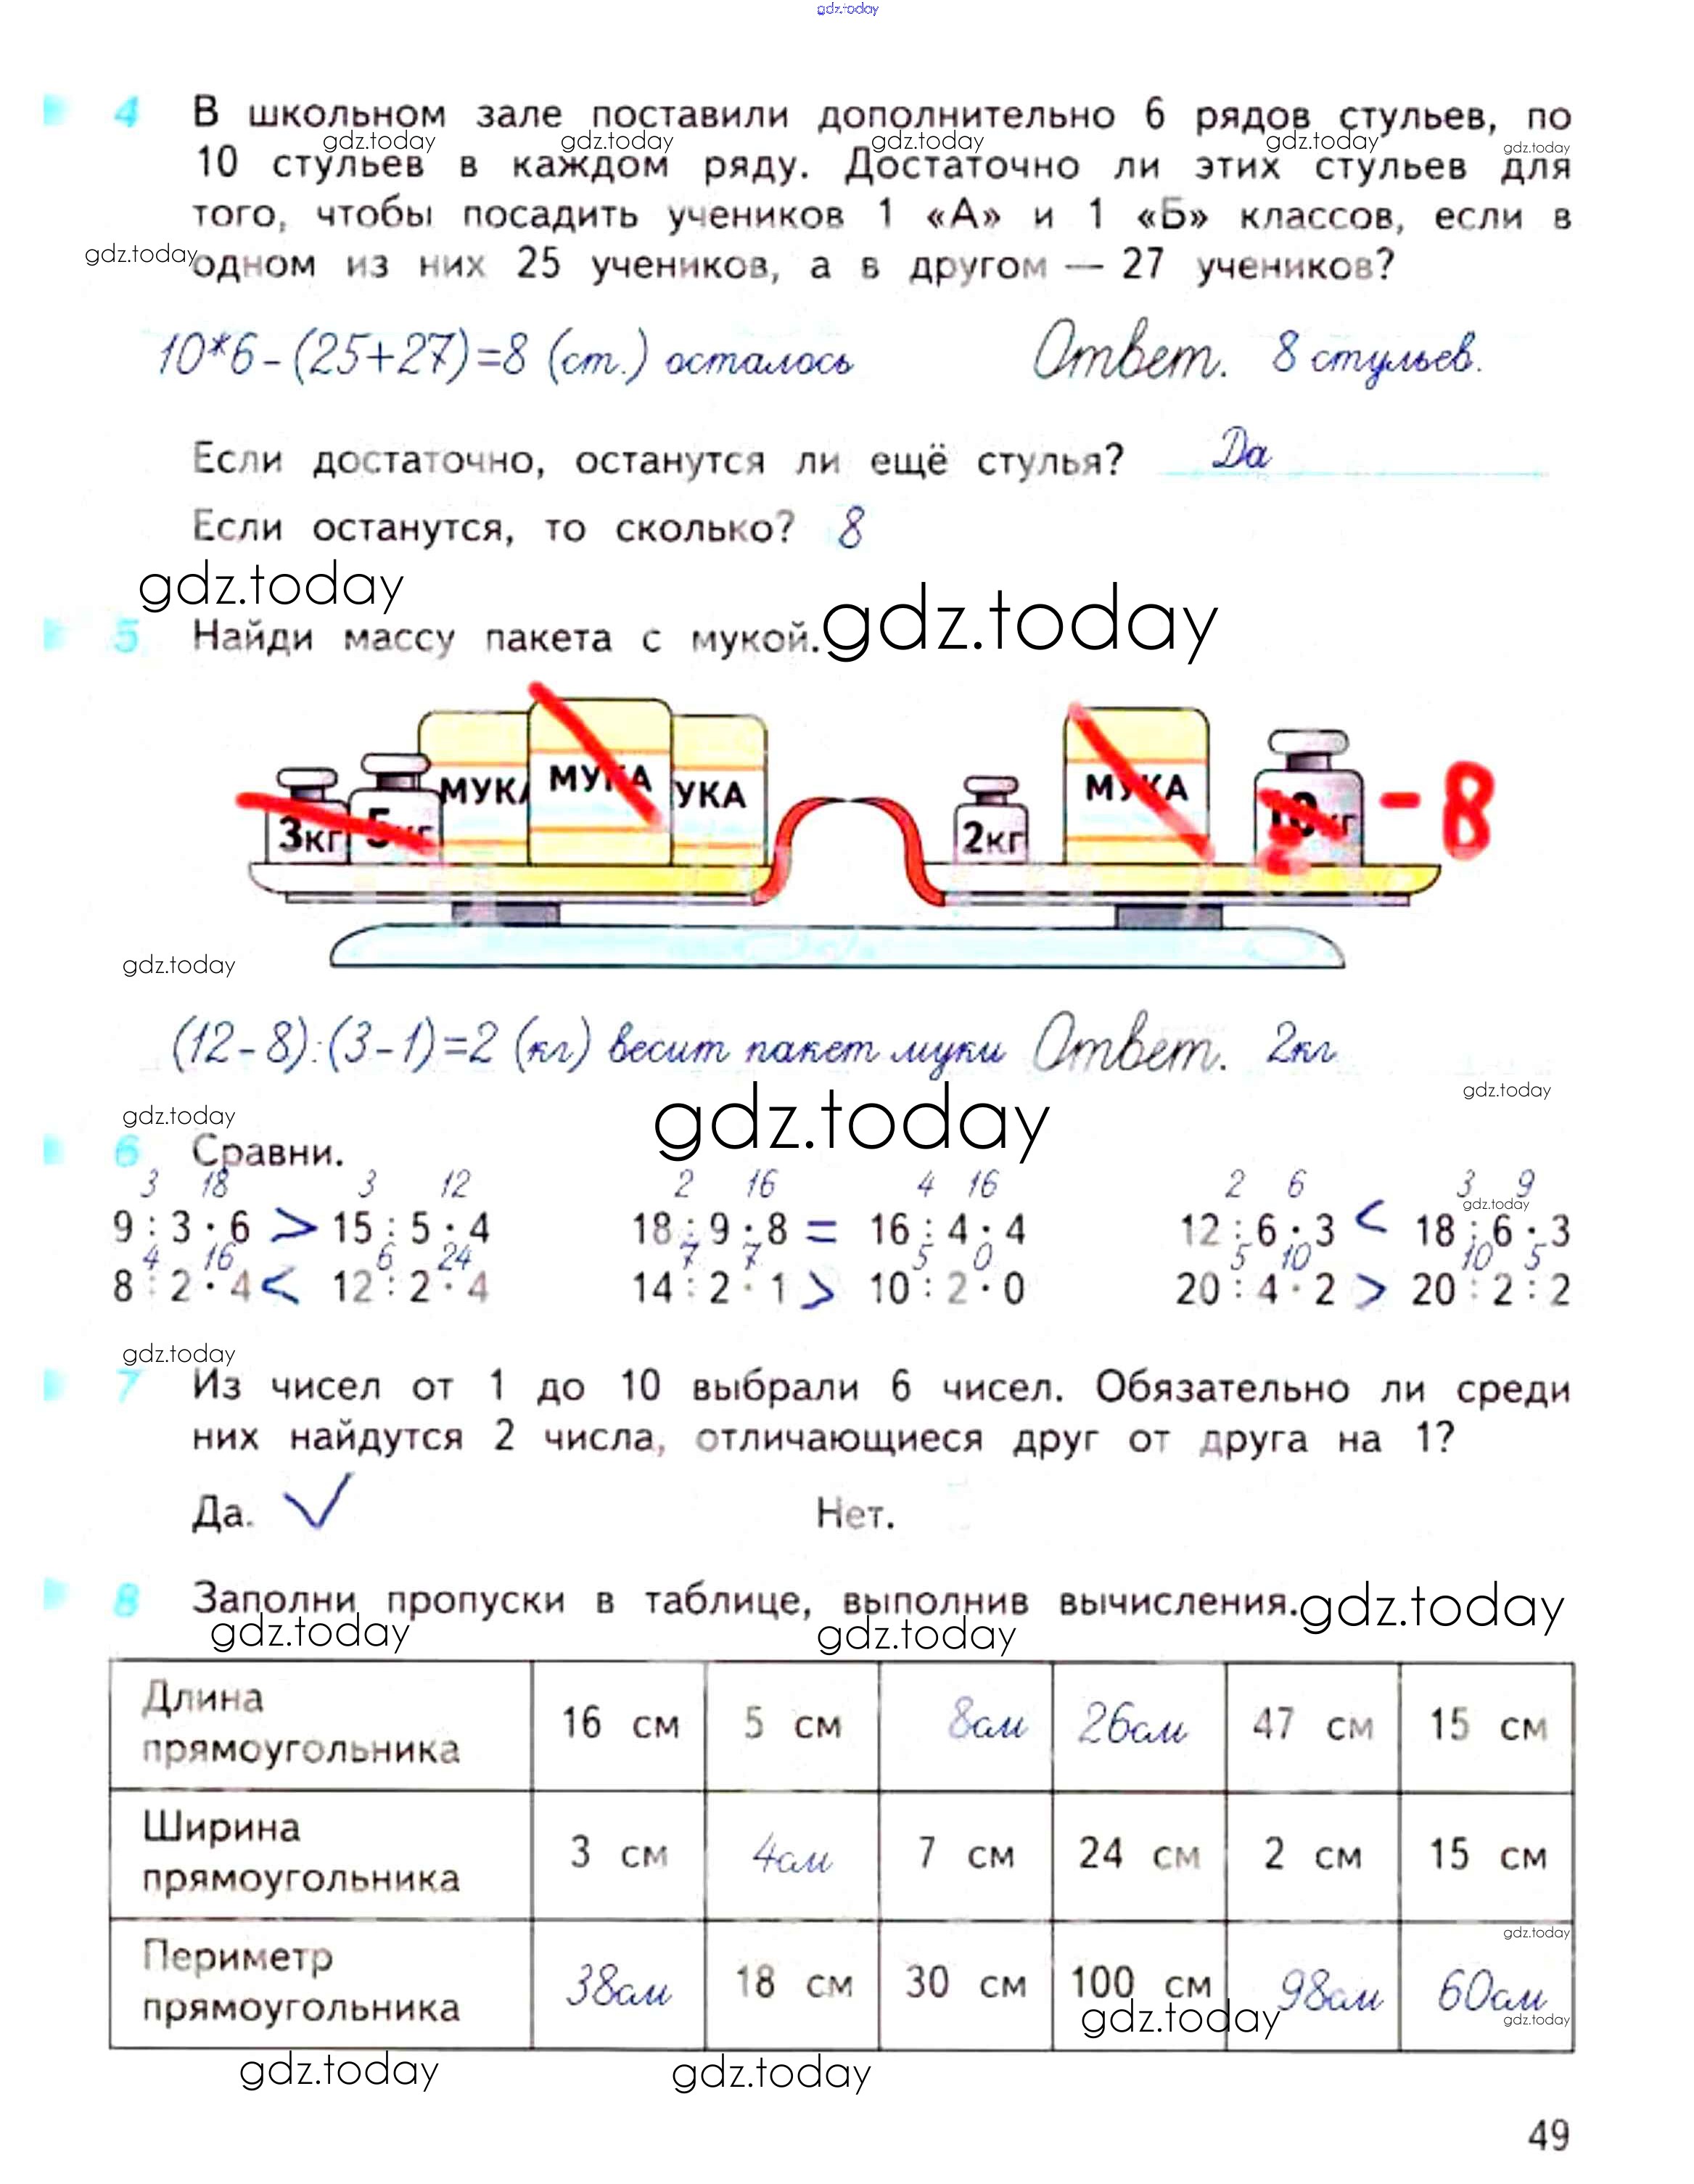 gdz.today
4 В школьном зале поставили дополнительно 6 рядов стульев, по
gdz.today gdz.today gdz.today gdz.today gdz.today
10 стульев в каждом ряду. Достаточно ли этих стульев для
того, чтобы посадить учеников 1 «А» и 1 «Б» классов, если в
gdz.today
одном из них 25 учеников, а в другом — 27 учеников?
10*6-(25+27)=8 (ст.) осталось Ответ. 8 стульев.
Если достаточно, останутся ли ещё стулья? Да
Если останутся, то сколько? 8
gdz.today gdz.today
5 Найди массу пакета с мукой.
МУКА МУКА УКА МУКА
3кг 5кг 2кг 10кг - 8
2
gdz.today
(12-8):(3-1)=2 (кг) весит пакет муки Ответ. 2кг
gdz.today gdz.today gdz.today
6 Сравни.
3 18 3 12 2 16 4 16 2 6 3 9
gdz.today
9 : 3 · 6 > 15 : 5 · 4 18 : 9 · 8 = 16 : 4 · 4 12 : 6 · 3 < 18 : 6 · 3
4 16 6 24 7 7 5 0 5 10 10 5
8 : 2 · 4 < 12 : 2 · 4 14 : 2 · 1 > 10 : 2 · 0 20 : 4 · 2 > 20 : 2 : 2
gdz.today
7 Из чисел от 1 до 10 выбрали 6 чисел. Обязательно ли среди
них найдутся 2 числа, отличающиеся друг от друга на 1?
Да. √ Нет.
8 Заполни пропуски в таблице, выполнив вычисления.
gdz.today gdz.today gdz.today
Длина
прямоугольника 16 см 5 см 8см 26см 47 см 15 см
Ширина
прямоугольника 3 см 4см 7 см 24 см 2 см 15 см
gdz.today
Периметр
прямоугольника 38см 18 см 30 см 100 см 98см 60см
gdz.today gdz.today
gdz.today gdz.today
49